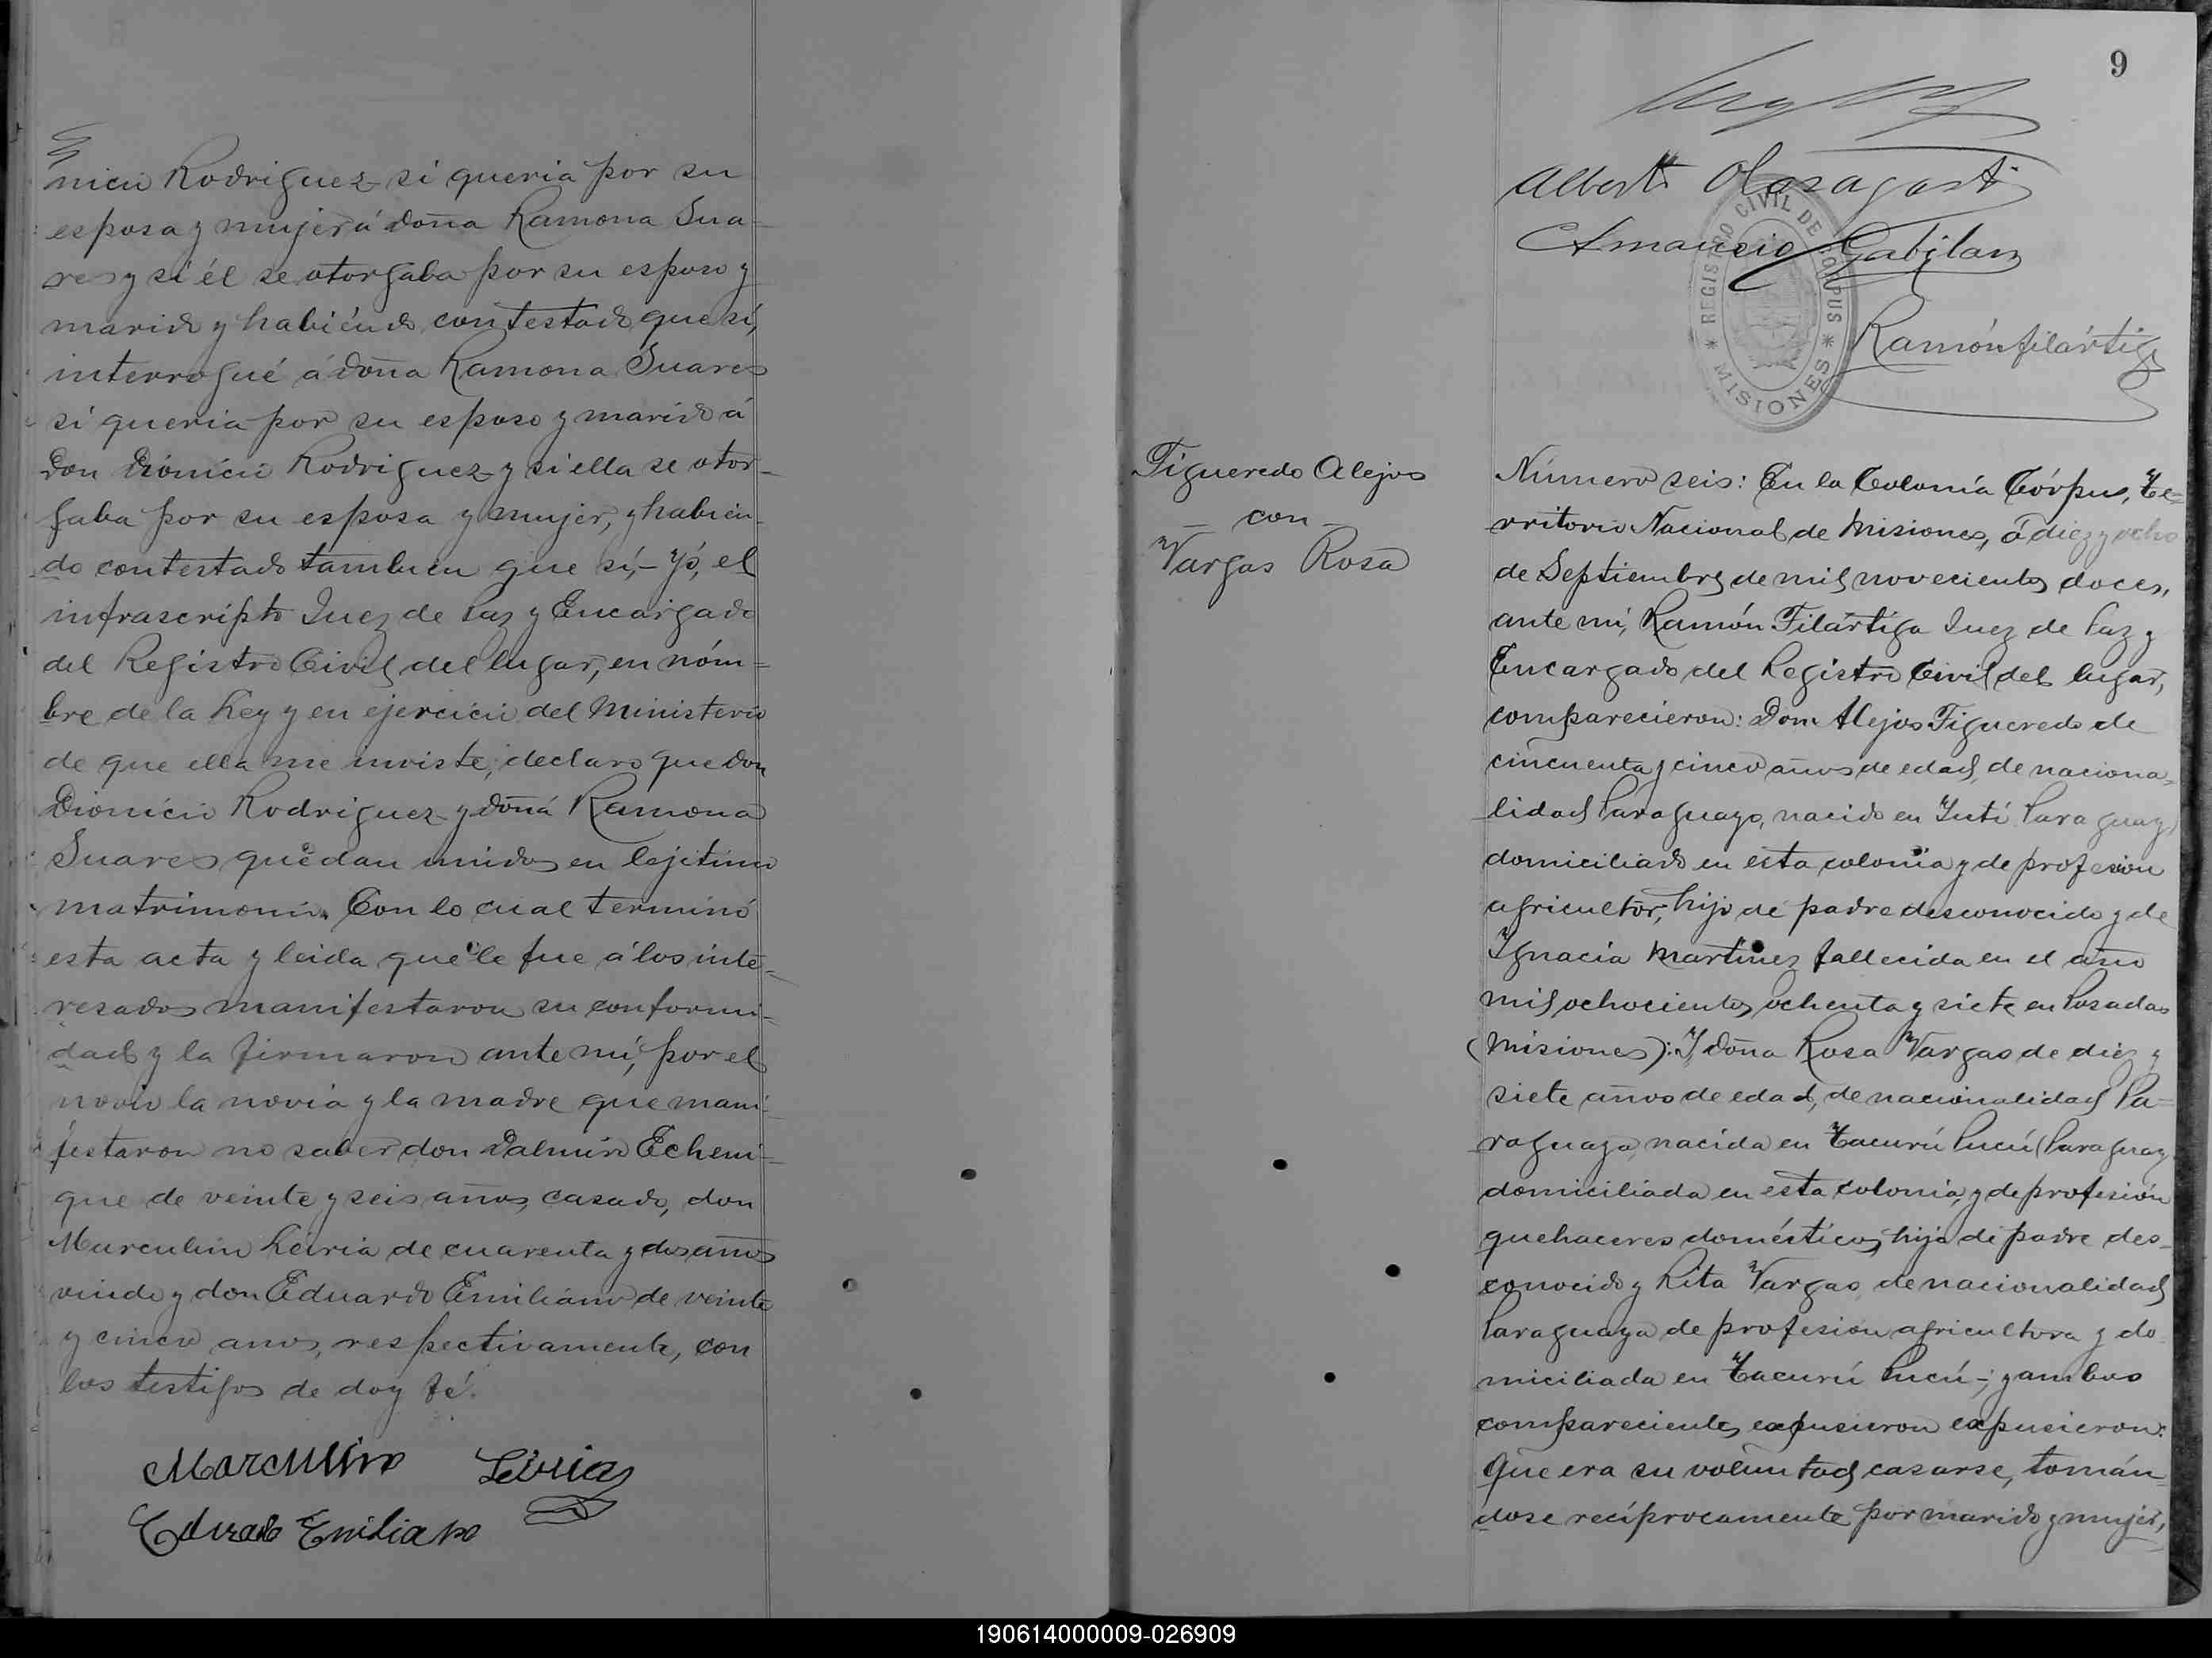 nicio Rodriguez si queria por su
esposa y mujer á doña Ramona Sua-
res y si él se otorgaba por su esposo y
marido y habiéndo contestado que sí,
interrogué á doña Ramona Suares
si queria por su esposo y marido á
Don Diónicio Rodriguez y si ella se otor-
gaba por su esposa y mujer, y habien-
do contestado tambien que sí,- yó, el
infrascripto Juez de Paz y Encargado
del Registro Civil del lugar, en nóm-
bre de la Ley y en ejercicio del Ministerio
de que ella me inviste, declaro que don
Dionicio Rodriguez y doña Ramona
Suares quedan unidos en lejitimo
matrimonio. Con lo cual terminó
esta acta y leida que le fue á los inte-
resados manifestaron su conformi-
dad y la firmaron ante mí, por el
novio la novia y la madre que mani-
festaron no saber don Dalmiro Echeni-
que de veinte y seis años, casado, don
Marculino Leiria de cuarenta y dos años
viudo y don Eduardo Emiliano de veinte
y cinco anos, respectivamente, con
los testigos de doy fé.
Marculino Leiria
Eduardo Emiliano
9
Alberto Olasagasti
Amancio Gabilan
REGISTRO CIVIL DE CORPUS
* MISIONES *
Ramón Filártiga
Figueredo Alejos
- con -
Vargas Rosa
Número seis: En la Colonia Córpus, Te-
rritorio Nacional de Misiones, á diez y ocho
de Septiembre de mil novecientos doces,
ante mí, Ramón Filártiga Juez de Paz y
Encargado del Registro Civil del lugar,
comparecieron: Don Alejos Figueredo de
cincuenta y cinco años de edad, de naciona-
lidad Paraguayo, nacido en Yutí Paraguay
domiciliado en esta colonia y de profesion
agricultor, hijo de padre desconocido y de
Ygnacia Martinez fallecida en el año
mil ochocientos ochenta y siete en Posadas
(Misiones): Y doña Rosa Vargas de diez y
siete años de edad, de nacionalidad Pa-
raguaya, nacida en Tacurú Pucú (Paraguay
domiciliada en esta colonia, y de profesión
quehaceres domésticos, hija de padre des-
conocido y Rita Vargas, de nacionalidad
Paraguaya de profesion agricultora y do-
miciliada en Tacurú Pucú-; y ambos
comparecientes expusieron expusieron:
Que era su voluntad casarse, tomán-
dose recíprocamente por marido y mujer,
190614000009-026909